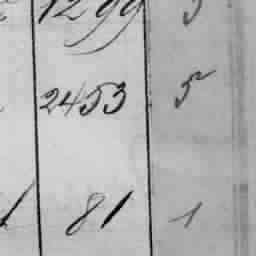 1299
2453 5
81 1